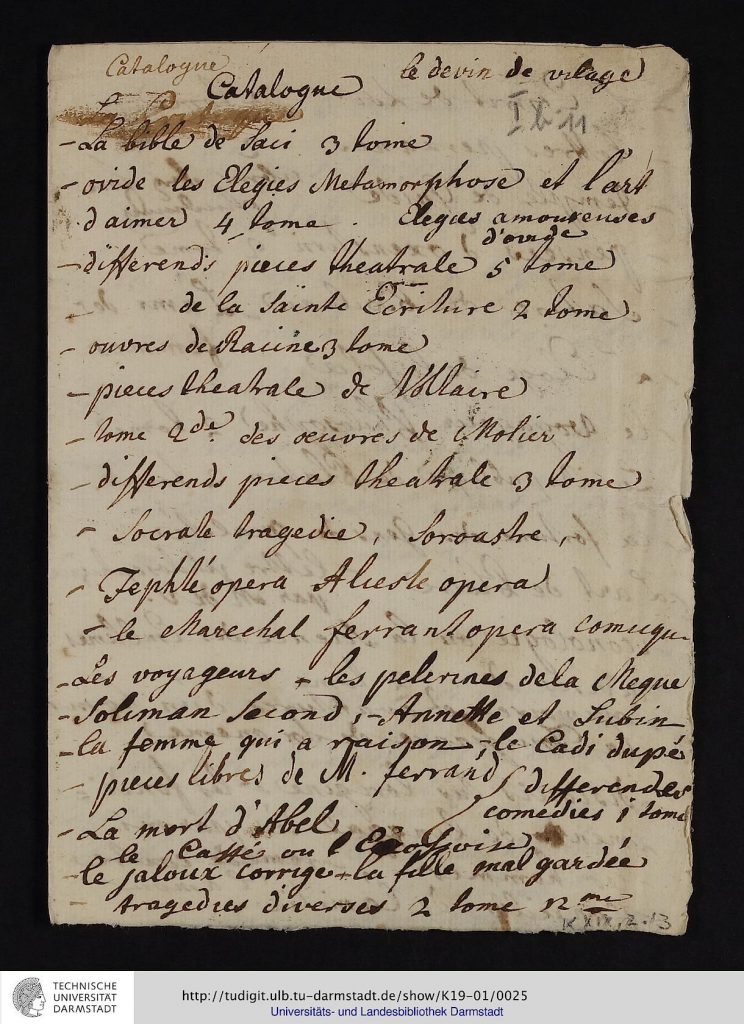 Catalogue
le devin de vilage
Catalogue
I b 11
- La bible de Saci 3 tome
- ovide les Elegies Metamorphose et l'art
d'aimer 4 tome . Elegies amoureuses
d'ovide
- differends pieces theatrale 5 tome
- de la Sainte Ecriture 2 tome
- ouvres de Racine 3 tome
- pieces theatrale de Voltaire
- tome 2de des oeuvres de Molier
- differends pieces theatrale 3 tome
- Socrate tragedie, Soroastre,
- Jephté opera Alceste opera
- le Marechal ferrant opera comique
- Les voyageurs - les pelerines de la Meque
- Soliman Second, - Annette et Lubin
- la femme qui a raison - le Cadi dupé
- pieces libres de M. ferrand
differendes
comedies 1 tome
- La mort d'Abel
le Caffé ou l'Ecossoise
- le jaloux corrige - la fille mal gardée
- tragedies diverses 2 tome 12me
K XIX, 2.13
TECHNISCHE
UNIVERSITÄT
DARMSTADT
http://tudigit.ulb.tu-darmstadt.de/show/K19-01/0025
Universitäts- und Landesbibliothek Darmstadt